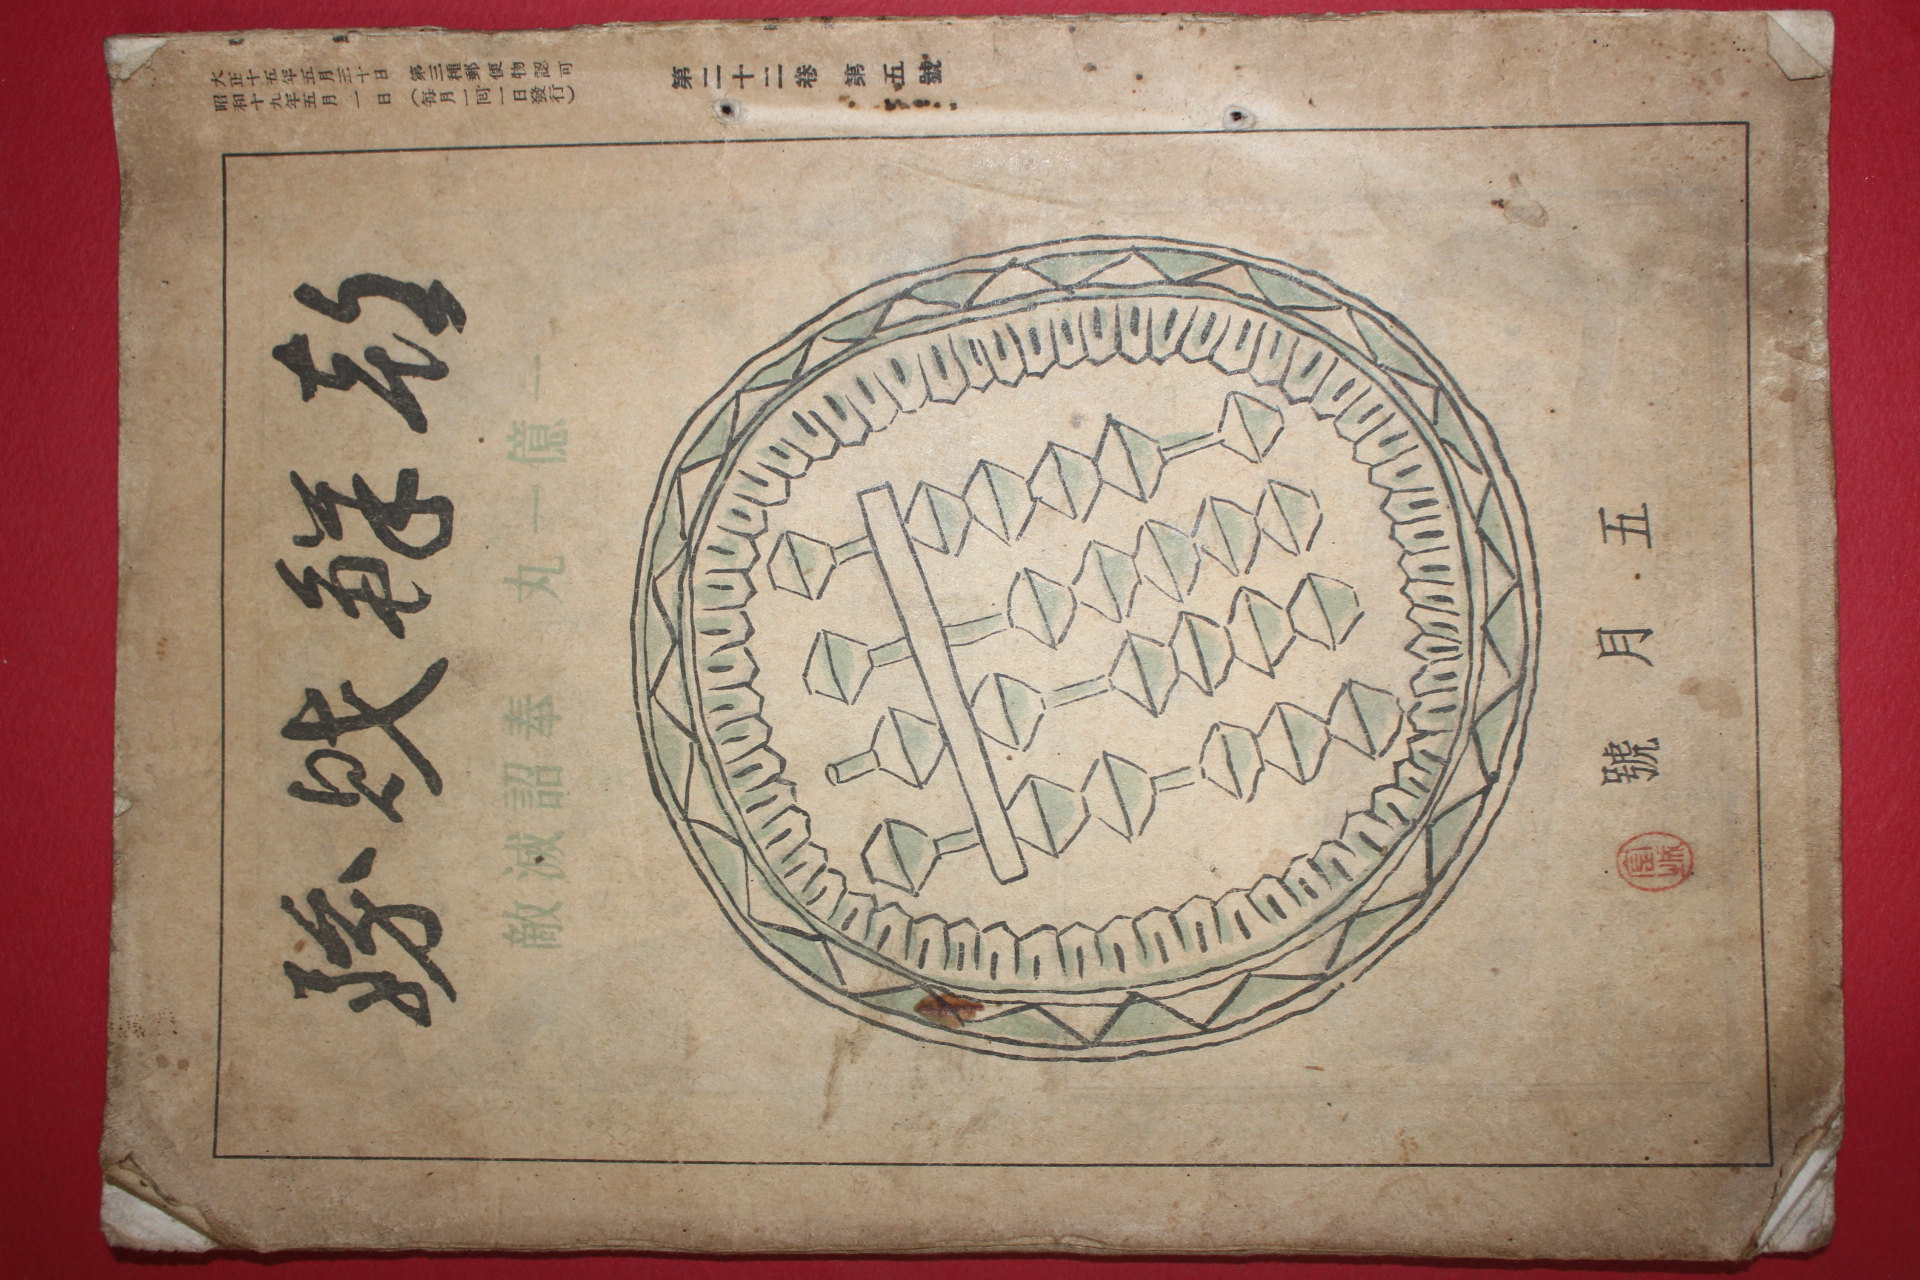 大正十五年五月三十日 第三種郵便物認可
昭和十九年五月一日 (毎月一囘一日發行)
第二十二卷 第五號
朝鮮財務
一億一丸 奉詔滅敵
五月號